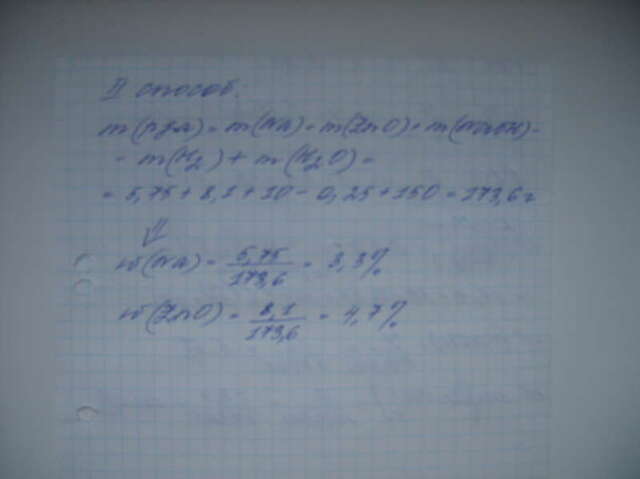 II способ.
m(р-ра) = m(Na) + m(ZnO) + m(NaOH) -
- m(H2) + m(H2O) =
= 5,75 + 8,1 + 10 - 0,25 + 150 = 173,6 г
⇓
w(Na) = 5,75 / 173,6 = 3,3%
w(ZnO) = 8,1 / 173,6 = 4,7%